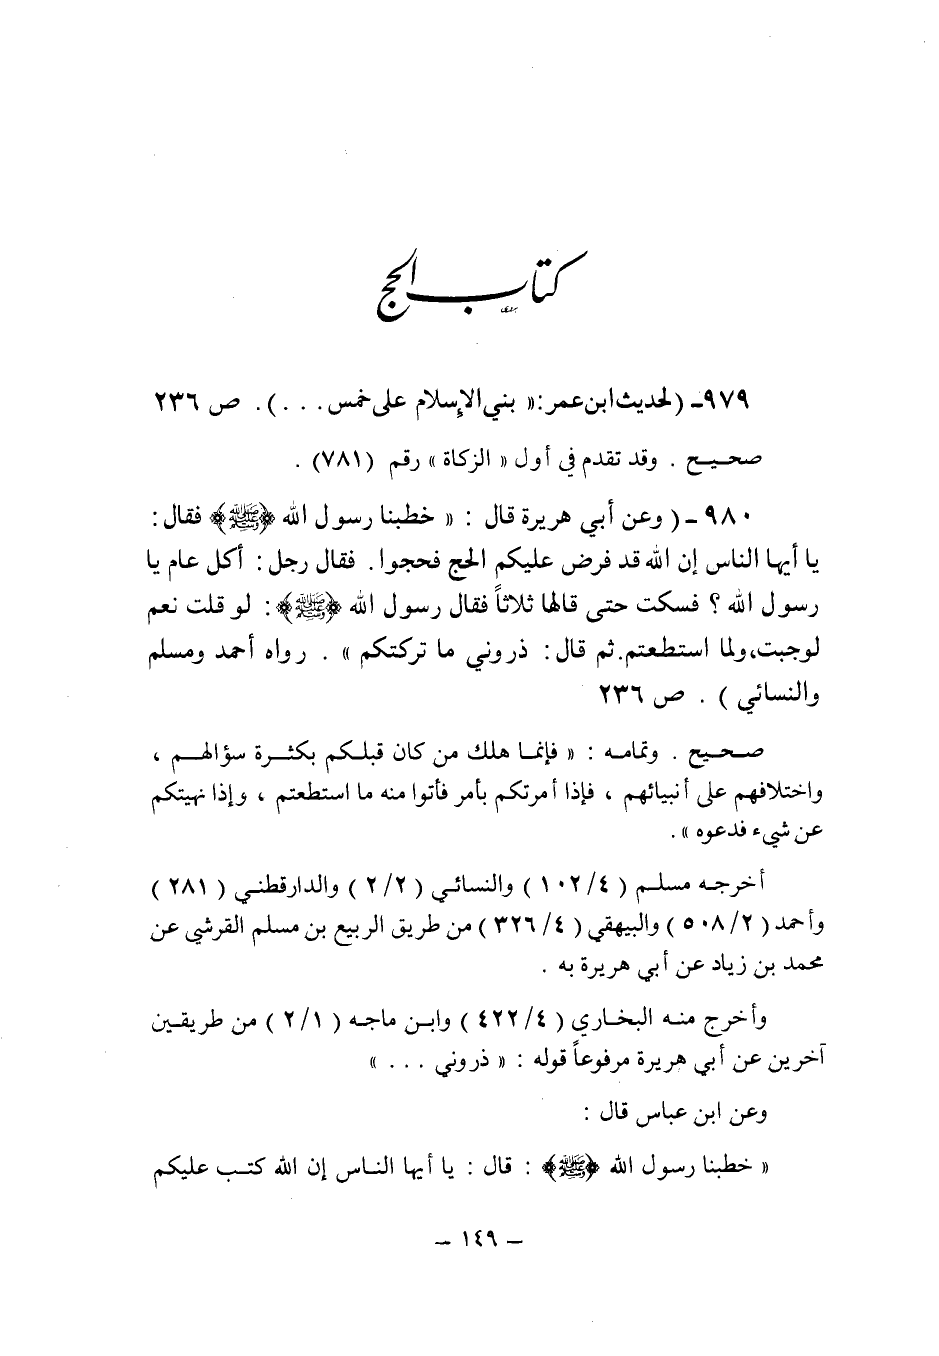 كتاب الحج
٩٧٩ـ (لحديث ابن عمر: « بني الإسلام على خمس . . . ) . ص ٢٣٦
صحيح . وقد تقدم في أول « الزكاة » رقم (٧٨١) .
٩٨٠ ـ ( وعن أبي هريرة قال : « خطبنا رسول الله ﴿ﷺ﴾ فقال :
يا أيها الناس إن الله قد فرض عليكم الحج فحجوا . فقال رجل : أكل عام يا
رسول الله ؟ فسكت حتى قالها ثلاثاً فقال رسول الله ﴿ﷺ﴾ : لو قلت نعم
لوجبت، ولما استطعتم . ثم قال : ذروني ما تركتكم » . رواه أحمد ومسلم
والنسائي ) . ص ٢٣٦
صحيح . وتمامه : « فإنما هلك من كان قبلكم بكثرة سؤالهم ،
واختلافهم على أنبيائهم ، فإذا أمرتكم بأمر فأتوا منه ما استطعتم ، وإذا نهيتكم
عن شيء فدعوه » .
أخرجه مسلم ( ٤/ ١٠٢ ) والنسائي ( ٢/٢ ) والدارقطني ( ٢٨١ )
وأحمد ( ٢/ ٥٠٨ ) والبيهقي ( ٤/ ٣٢٦ ) من طريق الربيع بن مسلم القرشي عن
محمد بن زياد عن أبي هريرة به .
وأخرج منه البخاري ( ٤/ ٤٢٢ ) وابن ماجه ( ١/ ٢ ) من طريقين
آخرين عن أبي هريرة مرفوعاً قوله : « ذروني . . . »
وعن ابن عباس قال :
« خطبنا رسول الله ﴿ﷺ﴾ : قال : يا أيها الناس إن الله كتب عليكم
– ١٤٩ –